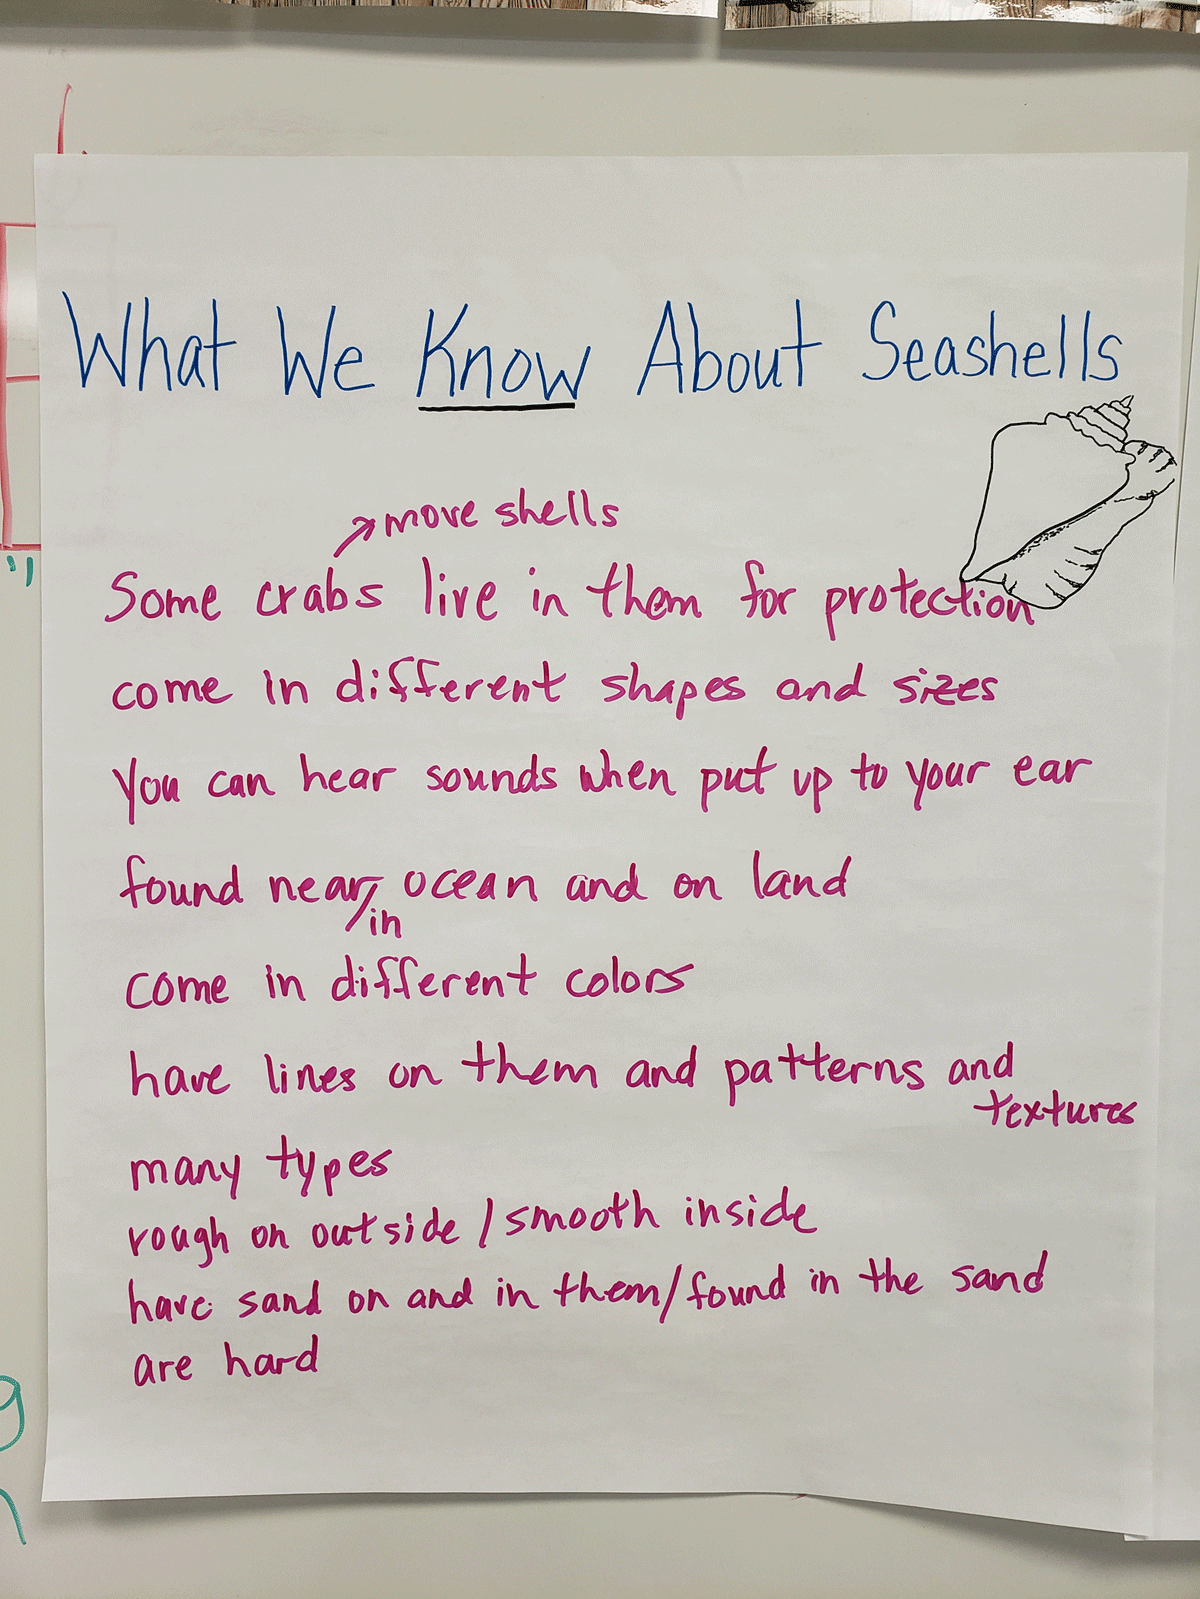 What We Know About Seashells
move shells
Some crabs live in them for protection
come in different shapes and sizes
You can hear sounds when put up to your ear
found near/in ocean and on land
come in different colors
have lines on them and patterns and
textures
many types
rough on outside / smooth inside
have sand on and in them/found in the sand
are hard